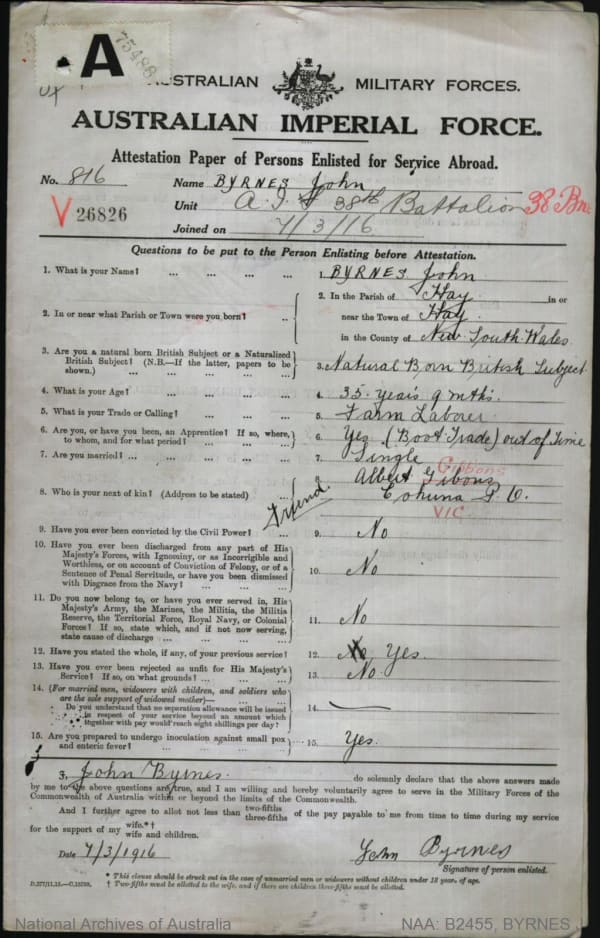 A
75488
AUSTRALIAN MILITARY FORCES.
AUSTRALIAN IMPERIAL FORCE.
Attestation Paper of Persons Enlisted for Service Abroad.
No. 816 Name BYRNES John
V 26826 Unit A.I.F 38th Battalion 38 Bn
Joined on 7/3/16
Questions to be put to the Person Enlisting before Attestation.
1. What is your Name? ... ... ... ... 1. BYRNES John
2. In or near what Parish or Town were you born? ..
2. In the Parish of Hay in or
near the Town of Hay
in the County of New South Wales
3. Are you a natural born British Subject or a Naturalized
British Subject? (N.B.—If the latter, papers to be
shown.) ... ... ... ...
3. Natural Born British Subject
4. What is your Age? ... ... ... ... 4. 35 years 9 mths.
5. What is your Trade or Calling? ... ... ... 5. Farm Laborer
6. Are you, or have you been, an Apprentice? If so, where,
to whom, and for what period? ... ... ...
6. Yes (Boot Trade) out of Time
7. Are you married? ... ... ... ... 7. Single
8. Who is your next of kin? (Address to be stated) ...
8. Albert Gibons Gibbons
Friend. Cohuna P.O.
VIC
9. Have you ever been convicted by the Civil Power? ... 9. No
10. Have you ever been discharged from any part of His
Majesty's Forces, with Ignominy, or as Incorrigible and
Worthless, or on account of Conviction of Felony, or of a
Sentence of Penal Servitude, or have you been dismissed
with Disgrace from the Navy? ... ... ...
10. No
11. Do you now belong to, or have you ever served in, His
Majesty's Army, the Marines, the Militia, the Militia
Reserve, the Territorial Force, Royal Navy, or Colonial
Forces? If so, state which, and if not now serving,
state cause of discharge ... ... ...
11. No
12. Have you stated the whole, if any, of your previous service? 12. No Yes.
13. Have you ever been rejected as unfit for His Majesty's
Service? If so, on what grounds? ... ... ...
13. No
14. (For married men, widowers with children, and soldiers who
are the sole support of widowed mother)—
Do you understand that no separation allowance will be issued
in respect of your service beyond an amount which
together with pay would reach eight shillings per day?
14. —
15. Are you prepared to undergo inoculation against small pox
and enteric fever? ... ... ... ...
15. Yes.
I, John Byrnes. do solemnly declare that the above answers made
by me to the above questions are true, and I am willing and hereby voluntarily agree to serve in the Military Forces of the
Commonwealth of Australia within or beyond the limits of the Commonwealth.
And I further agree to allot not less than two-fifths three-fifths of the pay payable to me from time to time during my service
for the support of my wife.*† wife and children.
Date 7/3/1916 John Byrnes
Signature of person enlisted.
* This clause should be struck out in the case of unmarried men or widowers without children under 18 years of age.
† Two-fifths must be allotted to the wife, and if there are children three-fifths must be allotted.
National Archives of Australia NAA: B2455, BYRNES